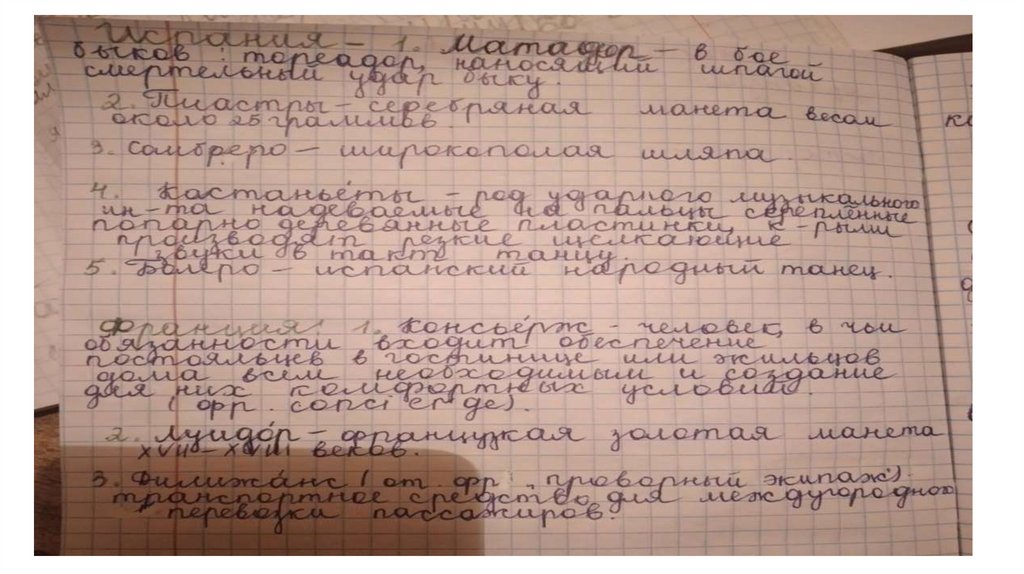 Испания – 1. Матадор – в бое
быков : тореадор, наносящий шпагой
смертельный удар быку.
2. Пиастры – серебряная манета весом
около 25 граммов.
3. Сомбреро – широкополая шляпа.
4. Кастанье́ты – род ударного музыкального
ин-та надеваемые на пальцы скреплённые
попарно деревянные пластинки, к-рыми
производят резкие щелкающие
звуки в такт танцу.
5. Болеро – испанский народный танец.
Франция 1. Консье́рж – человек, в чьи
обязанности входит обеспечение
постояльцев в гостинице или жильцов
дома всем необходимым и создание
для них комфортных условий.
( фр. concierge).
2. Луидо́р – французкая золотая манета
XVII – XVIII веков.
3. Дилижа́нс ( от фр. проворный экипаж)
транспортное средство для междугородной
перевозки пассажиров.